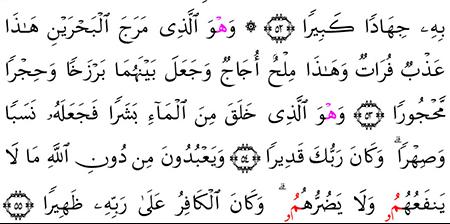 بِهِۦ جِهَادٗا كَبِيرٗا ۝٥٢ ۞ وَهْوَ ٱلَّذِي مَرَجَ ٱلۡبَحۡرَيۡنِ هَٰذَا
عَذۡبٞ فُرَاتٞ وَهَٰذَا مِلۡحٌ أُجَاجٞ وَجَعَلَ بَيۡنَهُمَا بَرۡزَخٗا وَحِجۡرٗا
مَّحۡجُورٗا ۝٥٣ وَهْوَ ٱلَّذِي خَلَقَ مِنَ ٱلۡمَآءِ بَشَرٗا فَجَعَلَهُۥ نَسَبٗا
وَصِهۡرٗاۗ وَكَانَ رَبُّكَ قَدِيرٗا ۝٥٤ وَيَعۡبُدُونَ مِن دُونِ ٱللَّهِ مَا لَا
يَنفَعُهُمُۥ وَلَا يَضُرُّهُمُۥۗ وَكَانَ ٱلۡكَافِرُ عَلَىٰ رَبِّهِۦ ظَهِيرٗا ۝٥٥